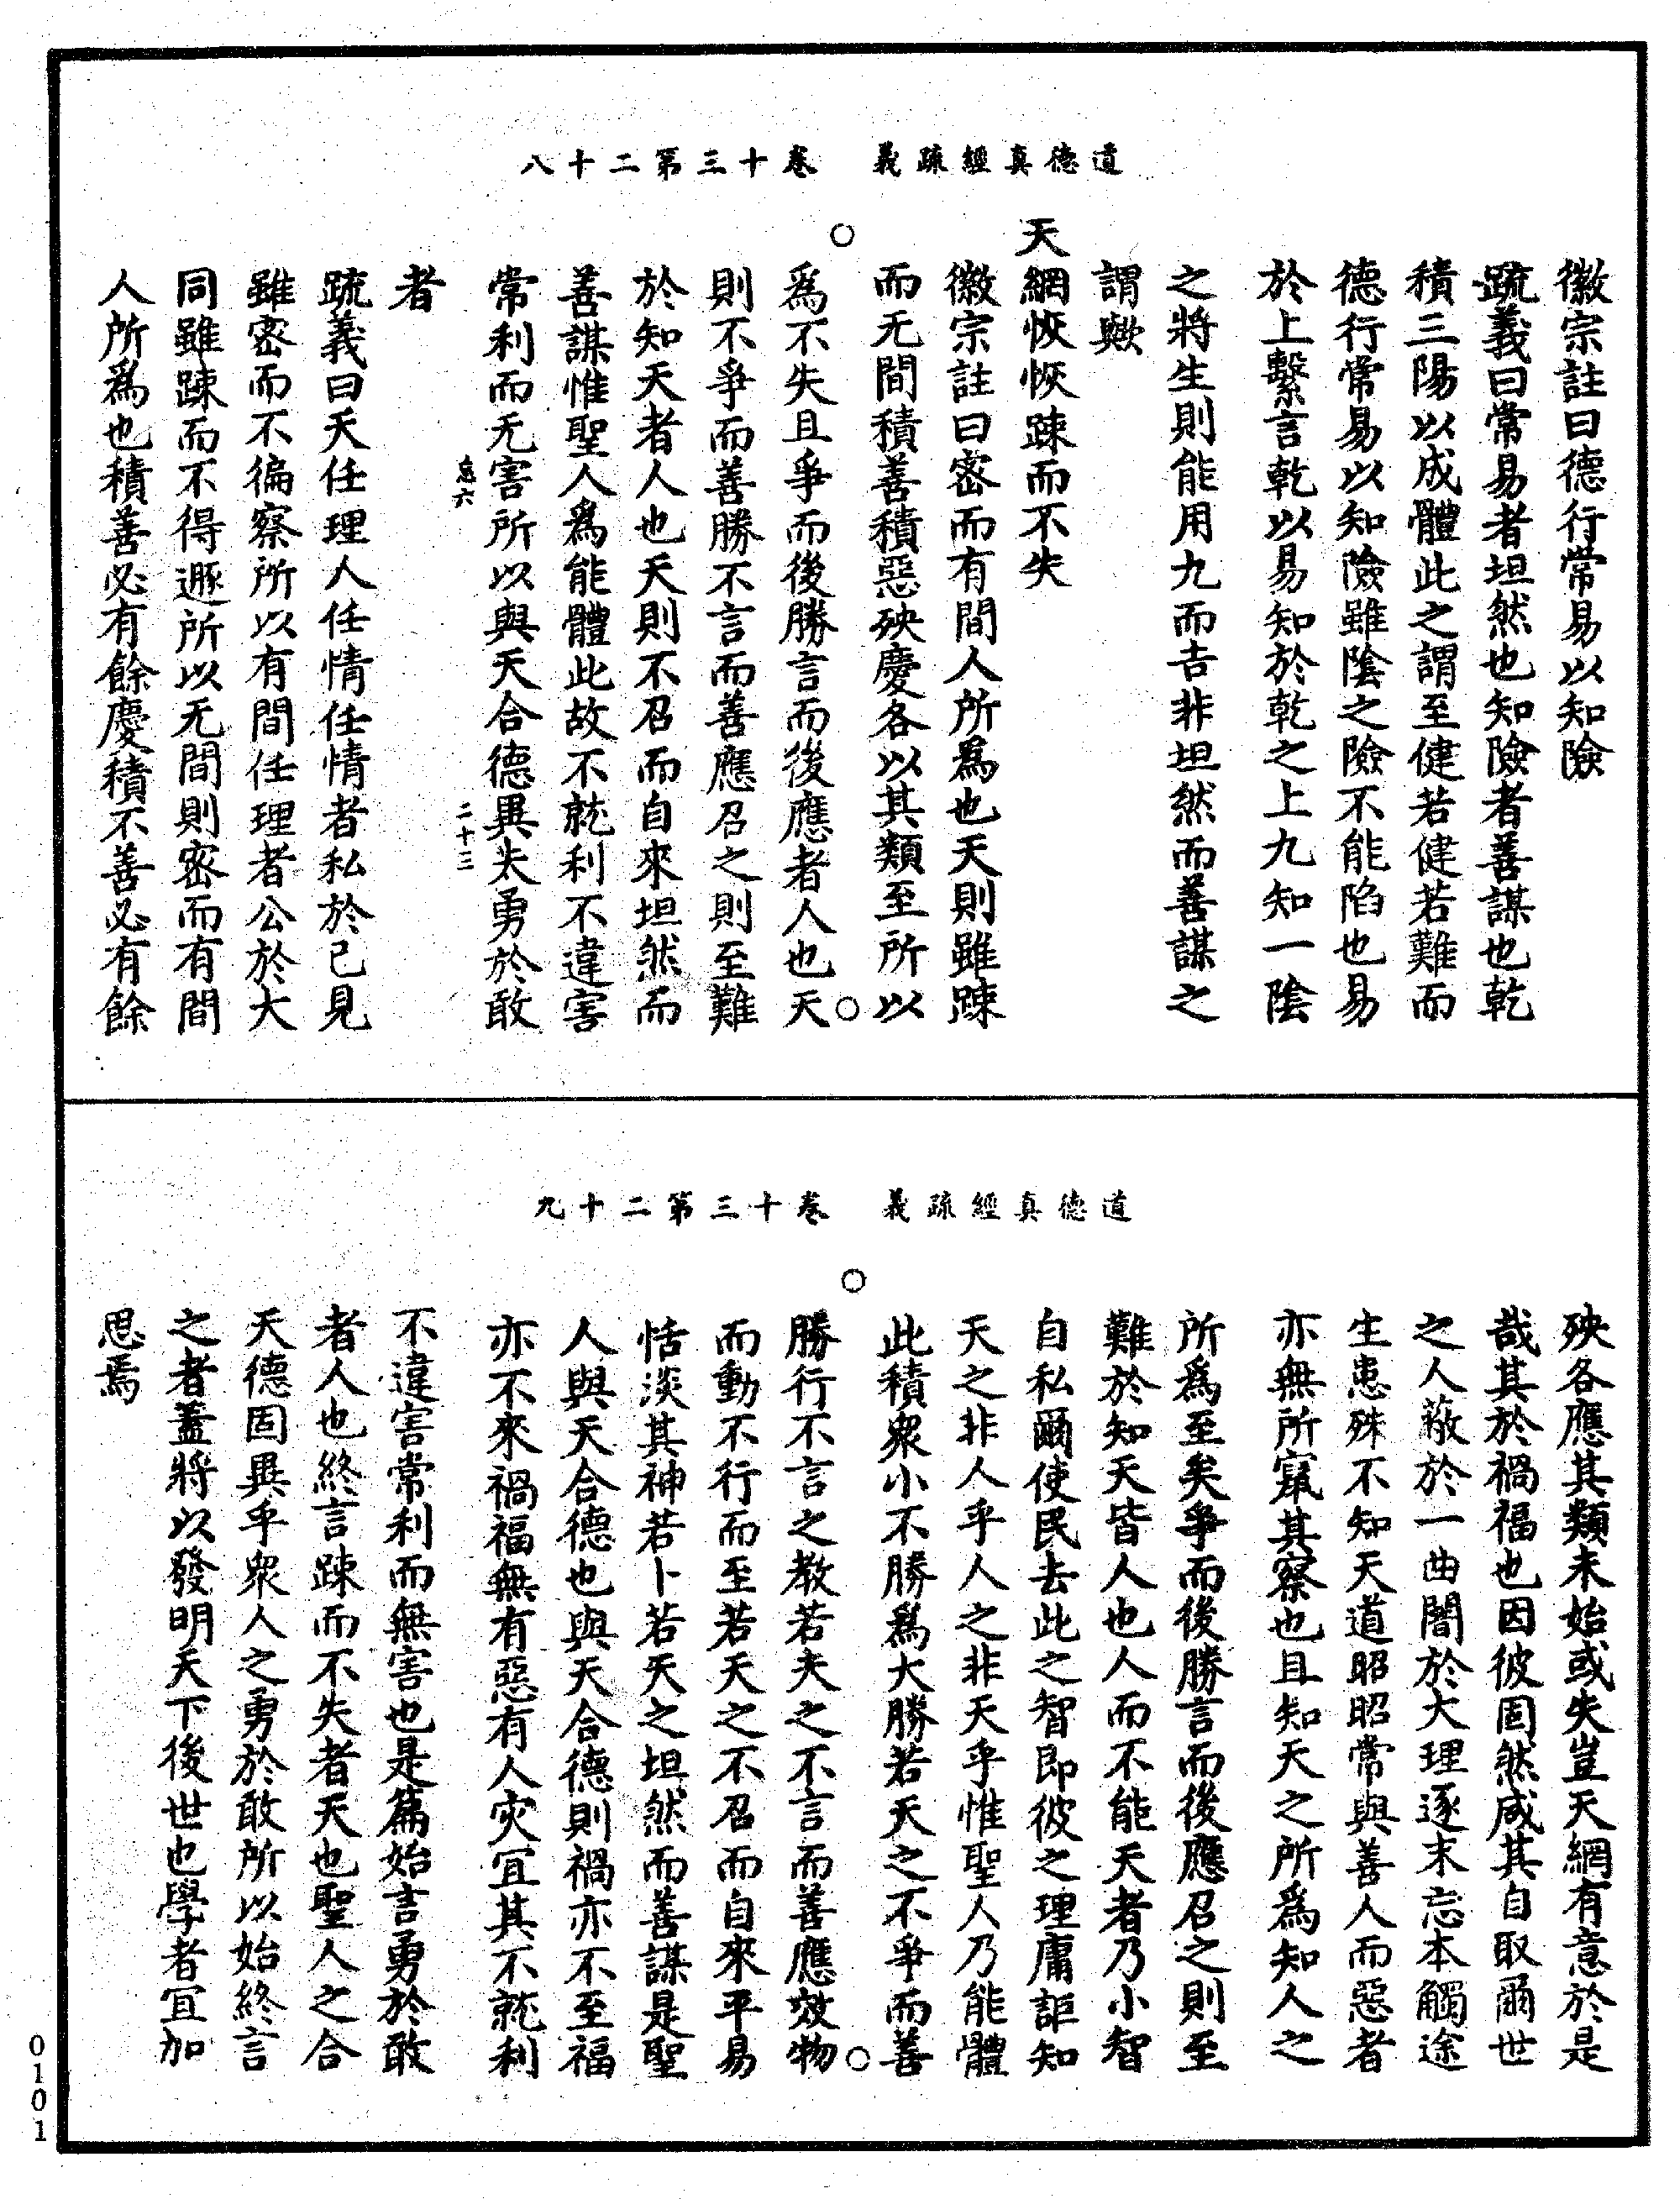 道德真經疏義　卷十三第二十八
徽宗註曰德行常易以知險
疏義曰常易者坦然也知險者善謀也乾
積三陽以成體此之謂至健若健若難而
德行常易以知險雖陰之險不能陷也易
於上繫言乾以易知於乾之上九知一陰
之將生則能用九而吉非坦然而善謀之
謂歟
天網恢恢踈而不失
徽宗註曰密而有間人所為也天則雖踈
而无間積善積惡殃慶各以其類至所以
為不失且爭而後勝言而後應者人也天
則不爭而善勝不言而善應召之則至難
於知天者人也天則不召而自來坦然而
善謀惟聖人為能體此故不就利不違害
常利而无害所以與天合德異夫勇於敢
忽六　二十三
者
疏義曰天任理人任情任情者私於己見
雖密而不徧察所以有間任理者公於大
同雖踈而不得遯所以无間則密而有間
人所為也積善必有餘慶積不善必有餘
道德真經疏義　卷十三第二十九
殃各應其類未始或失豈天網有意於是
哉其於禍福也因彼固然咸其自取爾世
之人蔽於一曲闇於大理逐末忘本觸途
生患殊不知天道昭昭常與善人而惡者
亦無所竄其察也且知天之所為知人之
所為至矣爭而後勝言而後應召之則至
難於知天皆人也人而不能天者乃小智
自私爾使民去此之智即彼之理庸詎知
天之非人乎人之非天乎惟聖人乃能體
此積衆小不勝為大勝若天之不爭而善
勝行不言之教若夫之不言而善應效物
而動不行而至若天之不召而自來平易
恬淡其神若卜若天之坦然而善謀是聖
人與天合德也與天合德則禍亦不至福
亦不來禍福無有惡有人灾宜其不就利
不違害常利而無害也是篇始言勇於敢
者人也終言踈而不失者天也聖人之合
天德固異乎衆人之勇於敢所以始終言
之者蓋將以發明天下後世也學者宜加
思焉
0101